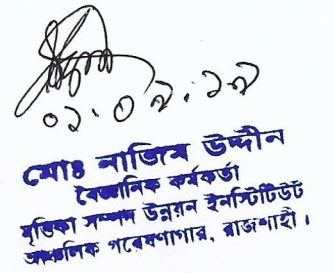 ০২.০৯.১৯
মোঃ নাজিম উদ্দীন
বৈজ্ঞানিক কর্মকর্তা
মৃত্তিকা সম্পদ উন্নয়ন ইনস্টিটিউট
আঞ্চলিক গবেষণাগার, রাজশাহী।